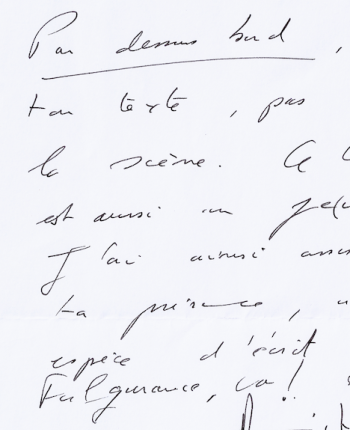 Par dessus bord,
ton texte, pas
la scène. Ce
est aussi un
J'ai ainsi
ta présence,
espèce d'écrit
Fulgurance, va !